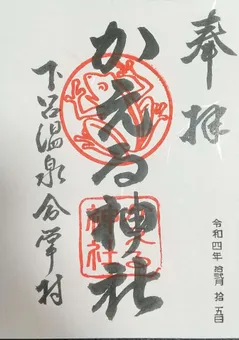 奉拝
令和四年 拾五日
かえる神社
かえる
神社
下呂温泉合掌村